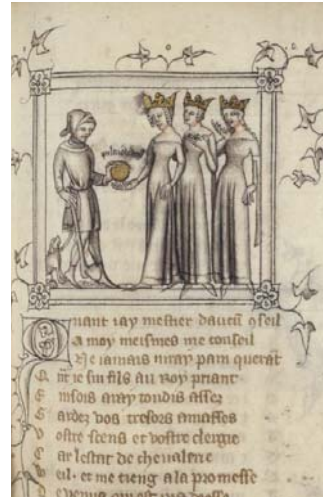 Quant iay mestier daucun 9seil
A moy meismes me conseil
Ne iamais niray
ie fui fils au Roy priant
E nsois aray toudis assez
G ardez vos tresors amasses
V ostre scens et vostre clergie
C ar lestat de cheualerie
V eil. et me tieng a la promesse
venus qui est ma